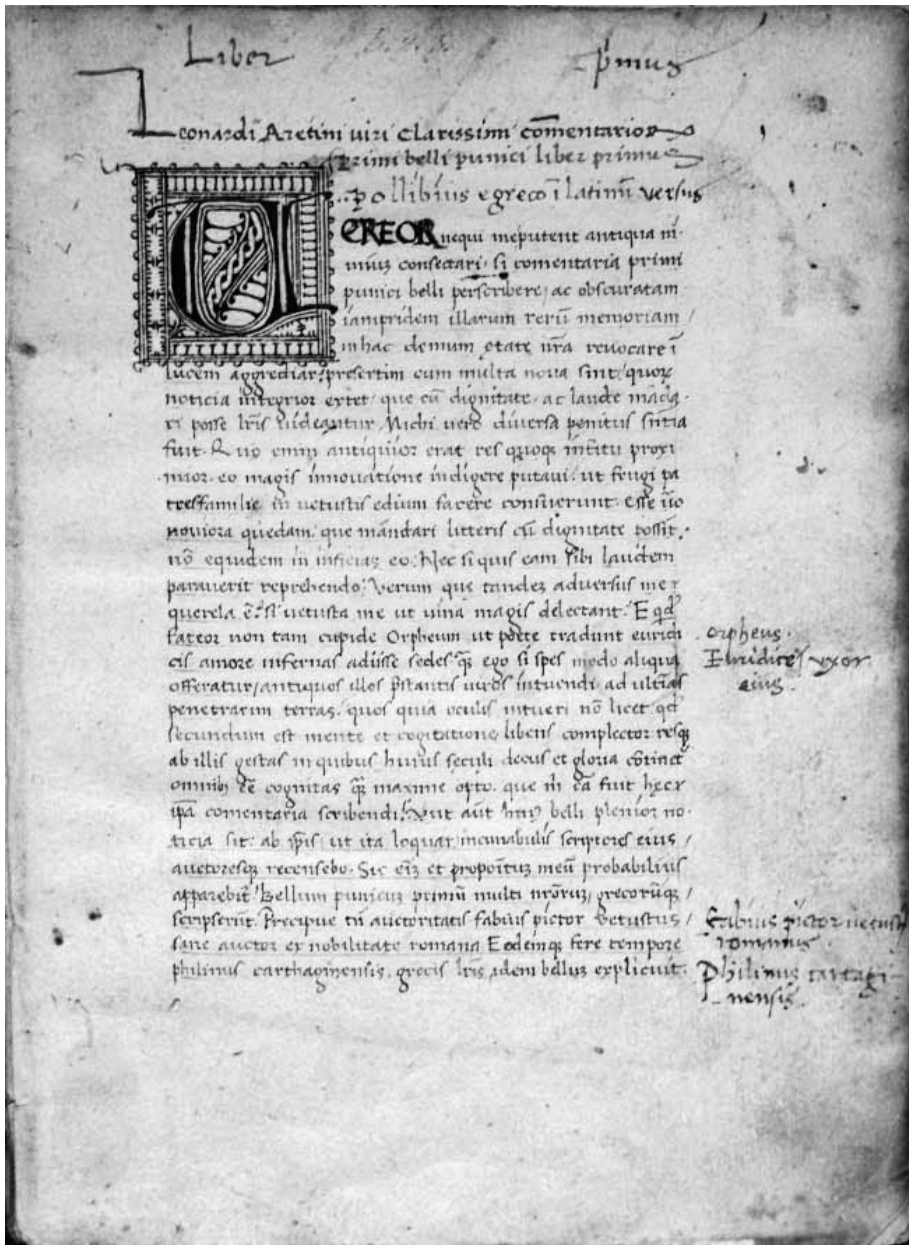 Liber pͥmus
Leonardi Aretini viri clarissimi comentarioꝝ
primi belli punici liber primus
pollibius e greco ī latinū versus
VEREOR nequi me putent antiqua ni
miuz consectari· si comentaria primi
punici belli perscribere, ac obscuratam
iampridem illarum rerū memoriam /
in hac demum etate nr̄a revocare ī
lucem aggrediar: presertim cum multa nova sint, quoꝝ
noticia integrior extet, que cū dignitate, ac laude māda·
ri posse lr̄is videantur. Michi vero diversa penitus sn̄tia
fuit. Quo enim antiquior erat res quoqꝫ proxi
mior· eo magis innovatione indigere putavi· ut frugi pa
tresfamilie in vetustis edium facere consuerunt. Esse ūo
noviora quedam· que mandari litteris cū dignitate possīt·
nō equidem in inficias eo: Nec si quis eam sibi laudem
paraverit reprehendo: Verum que tandez adversus me
querela ē: si vetusta me ut vina magis delectant. Eqd̄
fateor non tam cupide Orpheum ut poete tradunt euridi
cis amore infernas adiisse sedes qꝫ ego si spes modo aliqua
offeratur, antiquos illos p̄stantis viros intuendi· ad ultīas
penetrarim terras· quos quia oculis intueri nō licet qd̄
secundum est mente et cogitatione, libens complector resqꝫ
ab illis gestas in quibus huius seculi decus et gloria cōtinet̄
omnibꝫ eē cognitas qꝫ maxime opto· que m̄ cā fuit hec
ip̄a comentaria scribendi: Vut aūt huiꝰ belli plenior no·
ticia sit: ab ip̄is, ut ita loquar, incunabulis scriptores eius,
auctoresqꝫ recensebo. Sic eīz et propoītus meū probabilius
apparebit: Bellum punicuz primū multi nr̄oruz, grecorūqꝫ /
scripserūt. Precipue tn̄ auctoritatis fabius pictor vetustus /
sane auctor ex nobilitate romana Eodemqꝫ fere tempore
philinus carthaginensis, grecis lr̄is, idem belluz explicuit.
orpheus·
Euridices uxor
eius·
Fabius pictor vetust
romanus·
Philinus cartagi-
nensis·